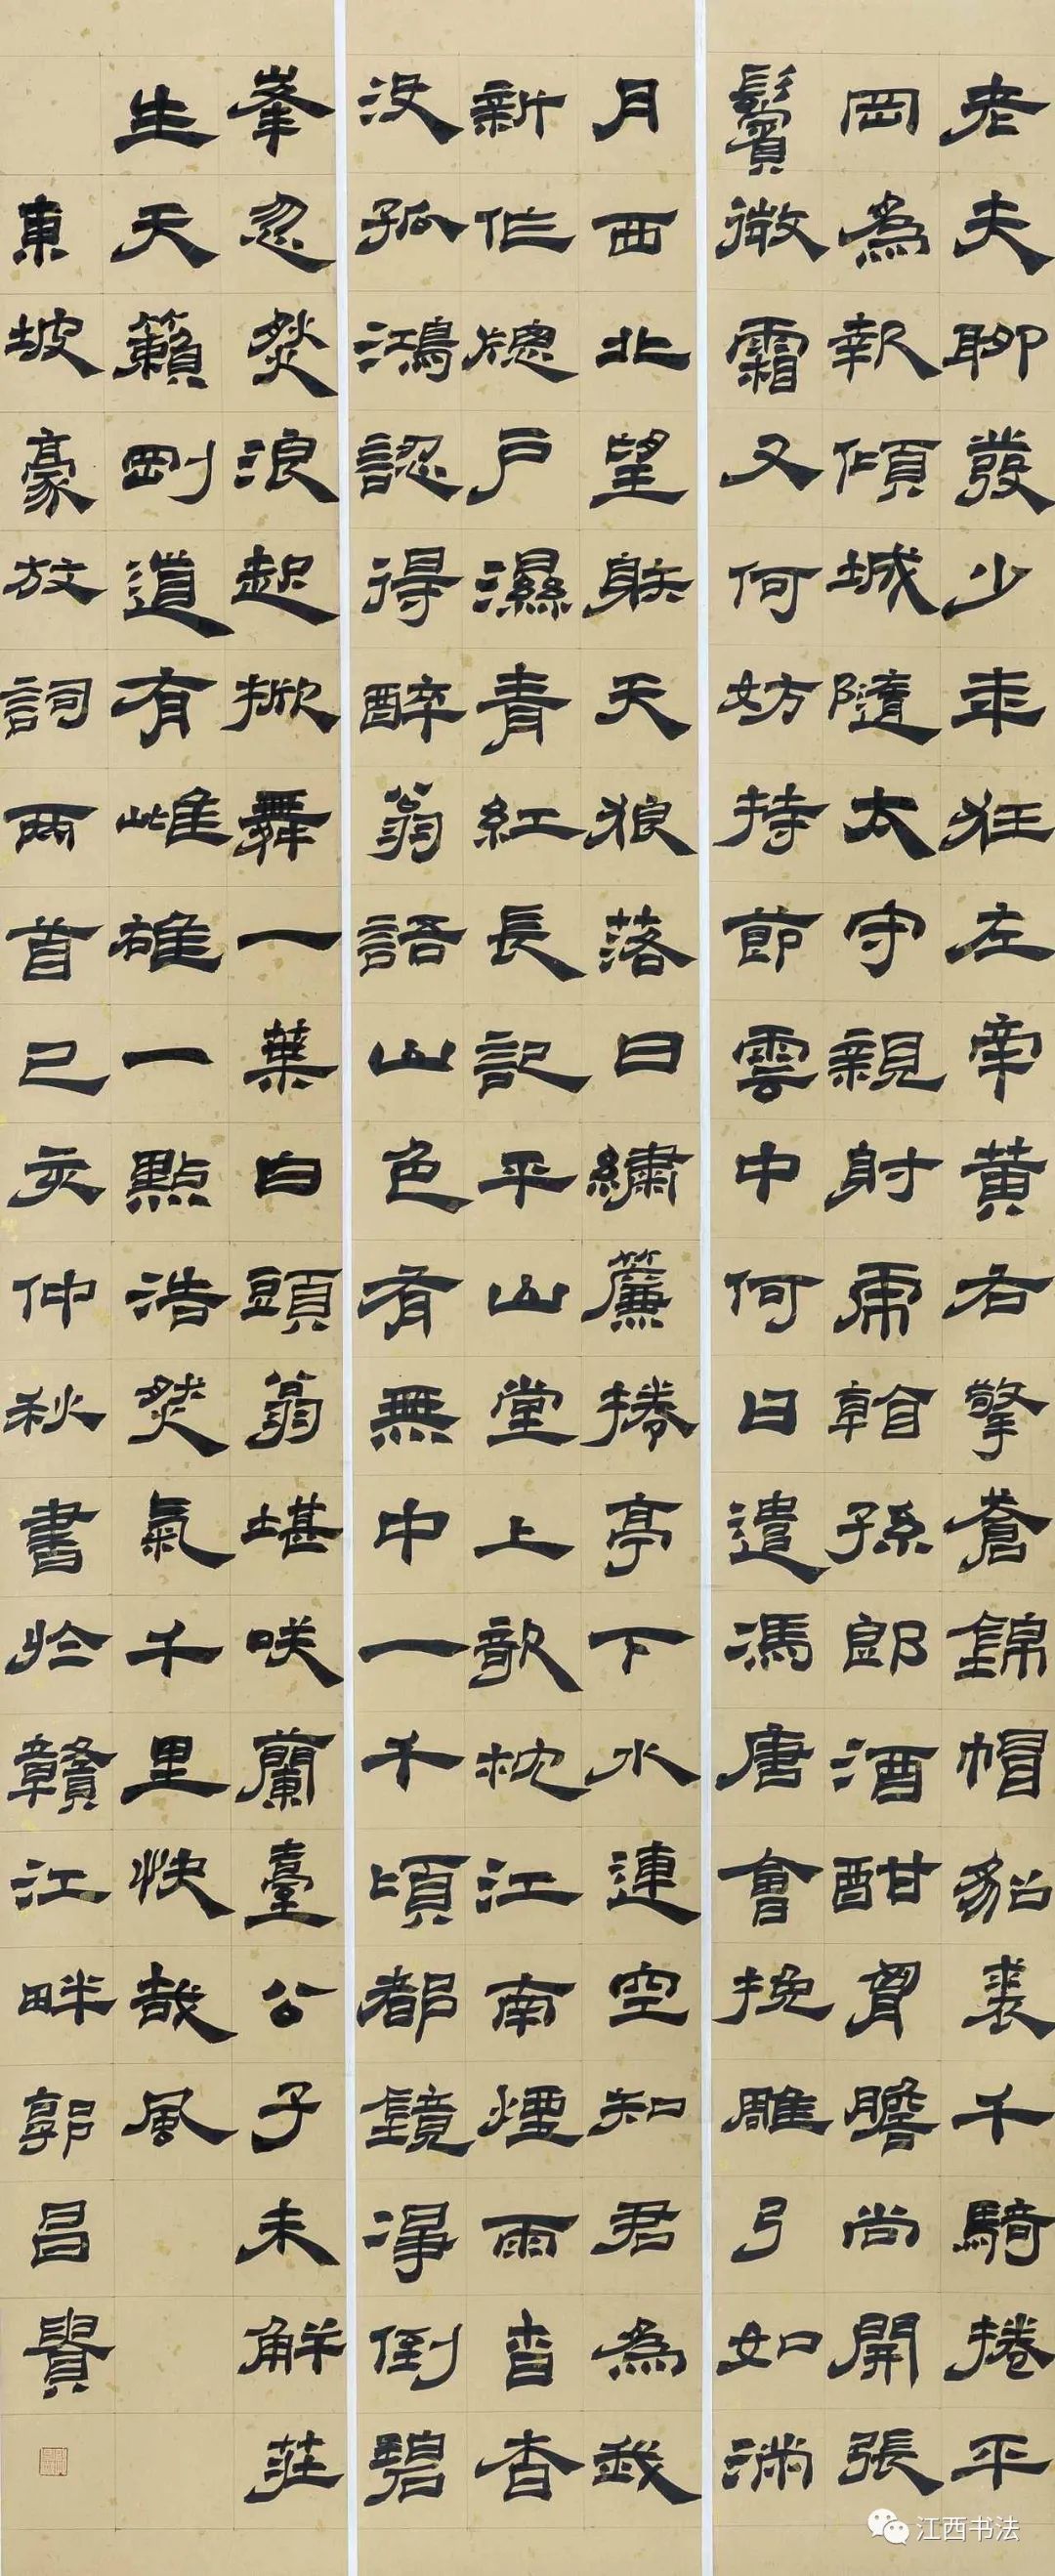 老夫聊發少年狂左牽黃右擎蒼錦帽貂裘千騎捲平
岡為報傾城隨太守親射虎看孫郎酒酣胷膽尚開張
鬢微霜又何妨持節雲中何日遣馮唐會挽雕弓如滿
月西北望射天狼落日繡簾捲亭下水連空知君為我
新作牕戶濕青紅長記平山堂上欹枕江南煙雨杳杳
沒孤鴻認得醉翁語山色有無中一千頃都鏡淨倒碧
峯忽然浪起掀舞一葉白頭翁堪咲蘭臺公子未解莊
生天籟剛道有雌雄一點浩然氣千里快哉風
東坡豪放詞兩首己亥仲秋書於贛江畔郭昌賢
江西书法